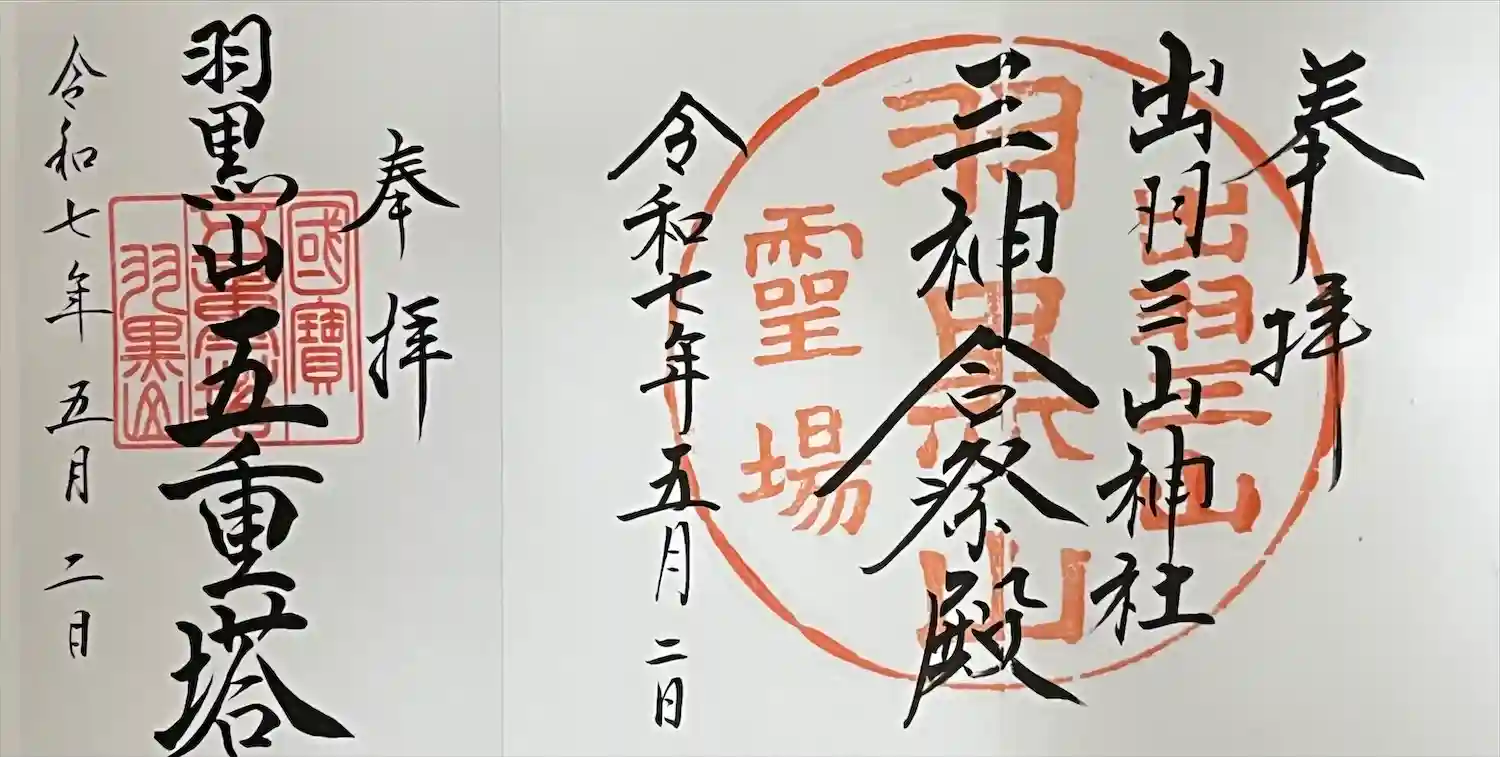 奉拝
出羽三山神社
三神合祭殿
令和七年五月二日
出羽三山
羽黒山
霊場
奉拝
羽黒山五重塔
令和七年五月二日
國寶
五重塔
羽黒山